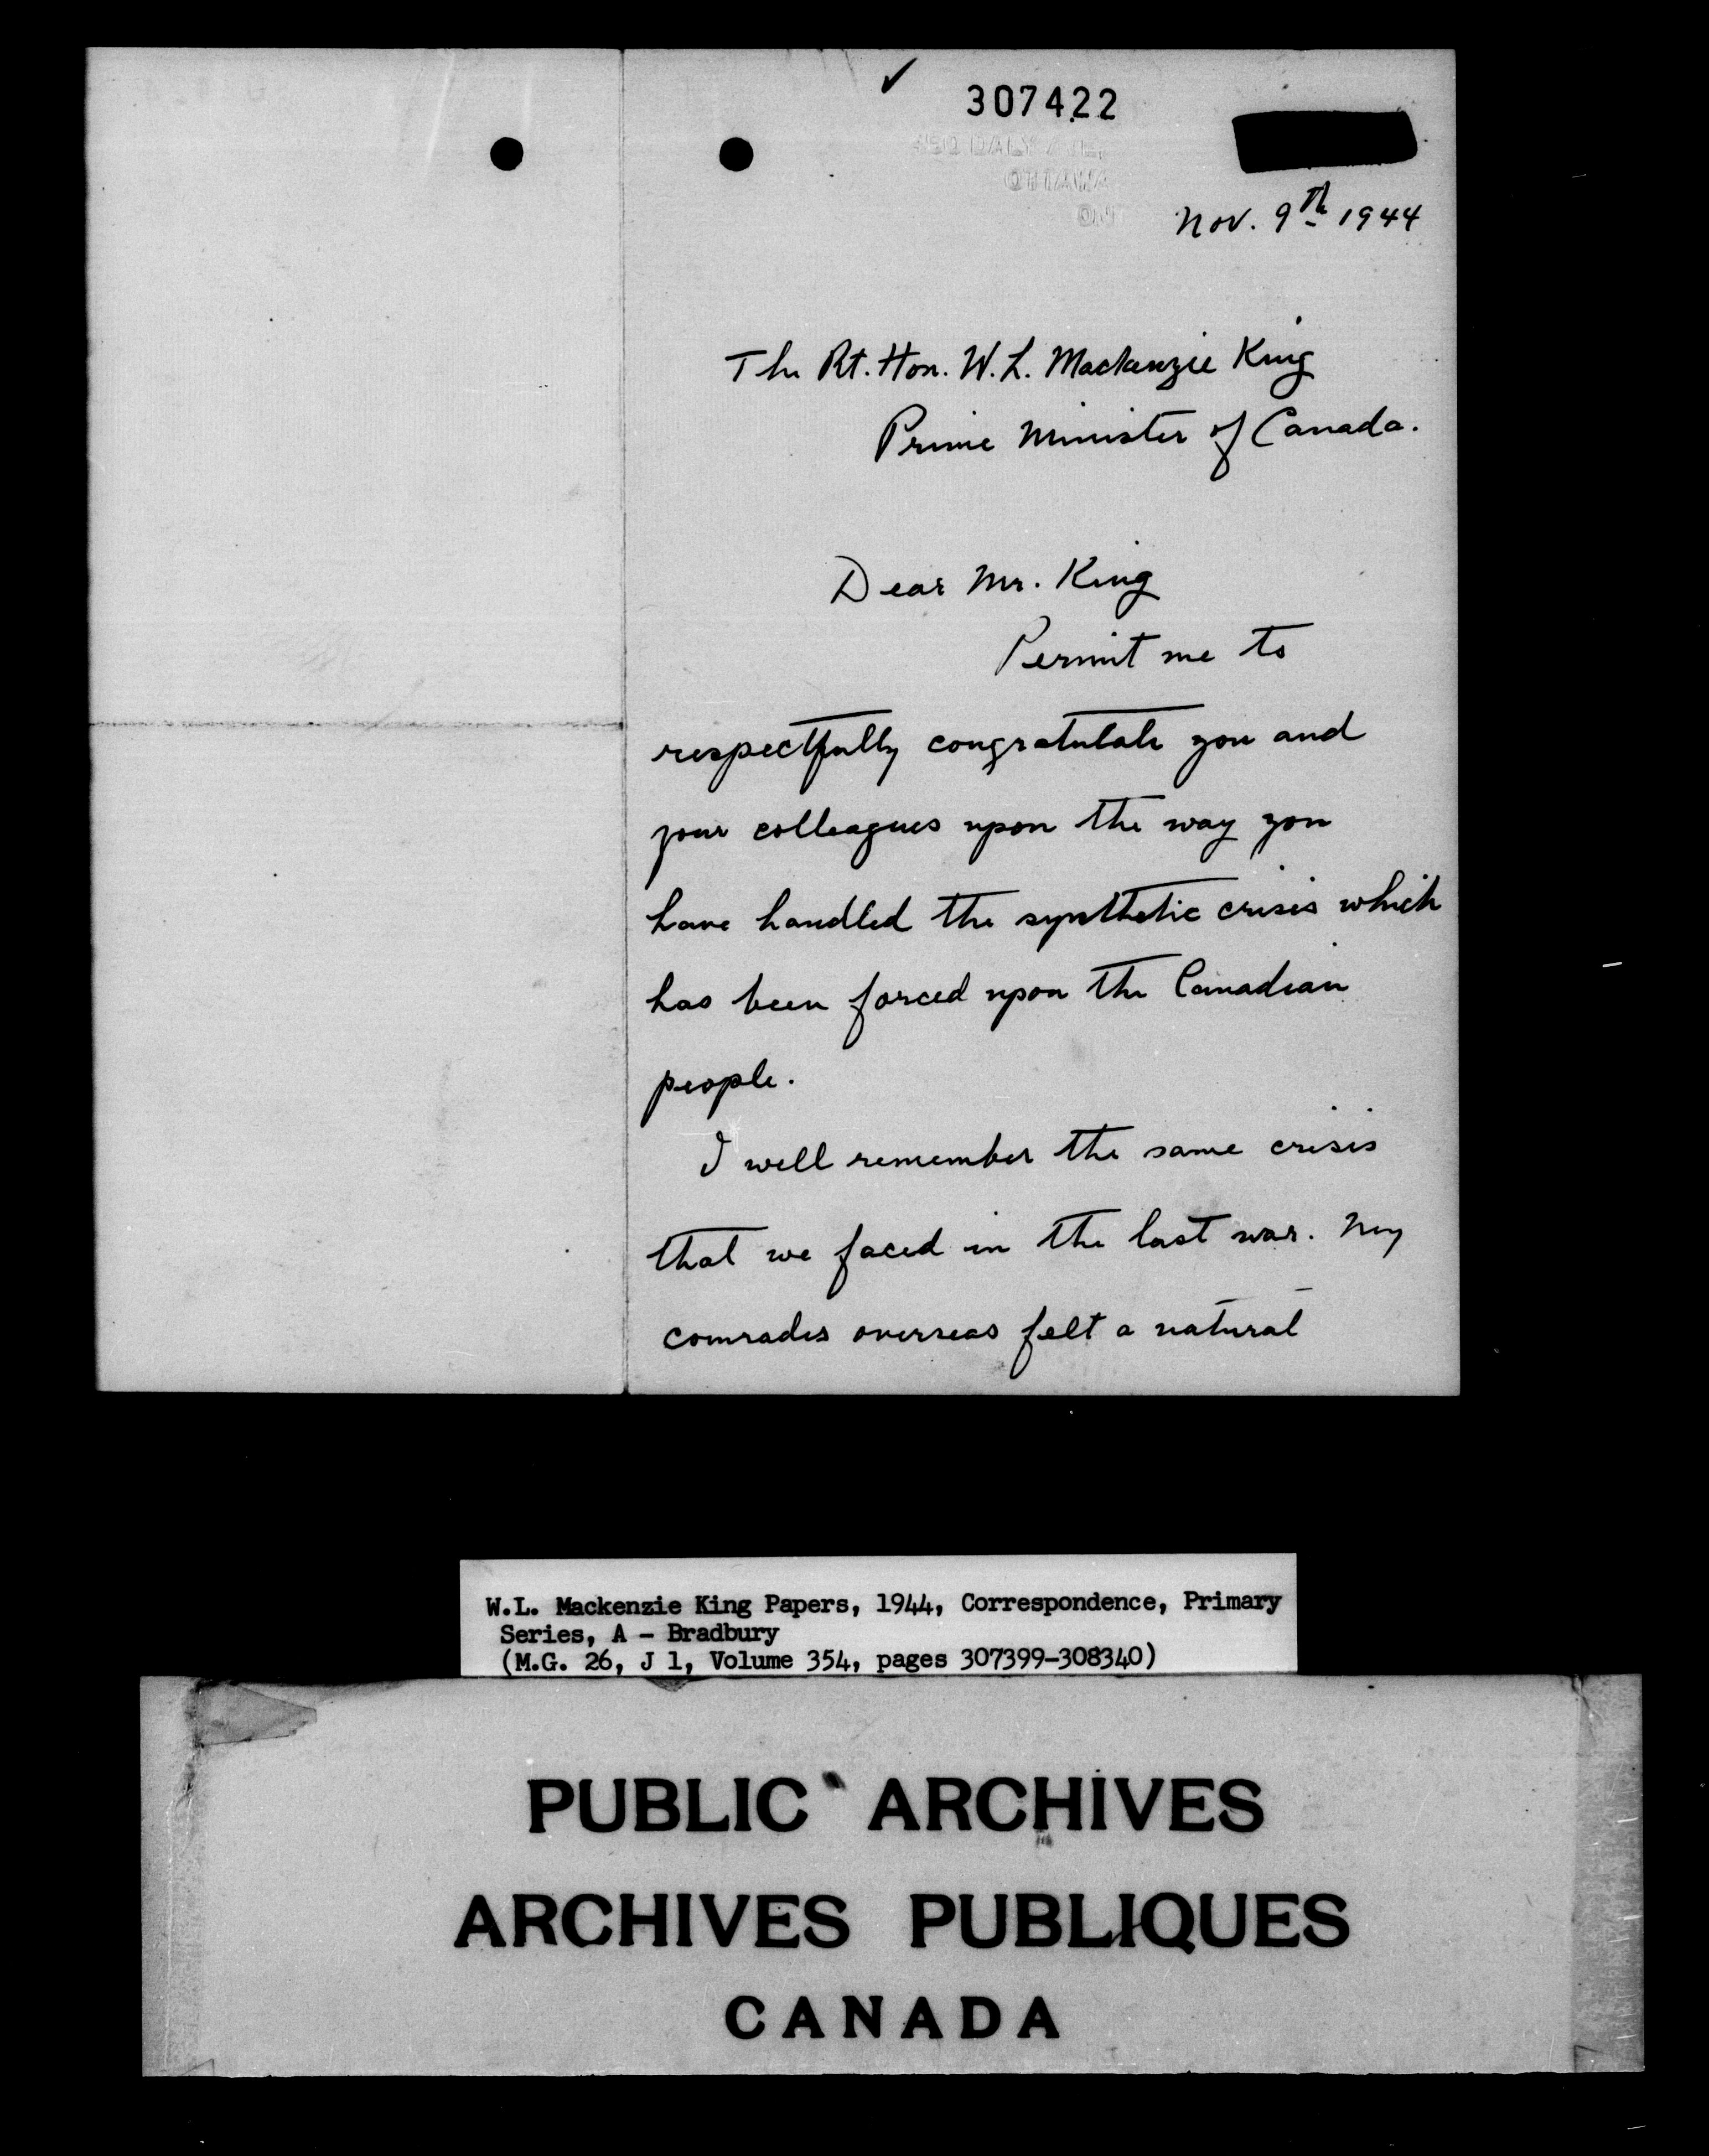 307422
OTTAWA
Nov. 9th 1944
The Rt. Hon. W. L. Mackenzie King
Prime Minister of Canada.
Dear Mr. King
Permit me to
respectfully congratulate you and
your colleagues upon the way you
have handled the synthetic crisis which
has been forced upon the Canadian
people.
I well remember the same crisis
that we faced in the last war. My
comrades overseas felt a natural
W.L. Mackenzie King Papers, 1944, Correspondence, Primary
Series, A - Bradbury
(M.G. 26, J 1, Volume 354, pages 307399-308340)
PUBLIC ARCHIVES
ARCHIVES PUBLIQUES
CANADA